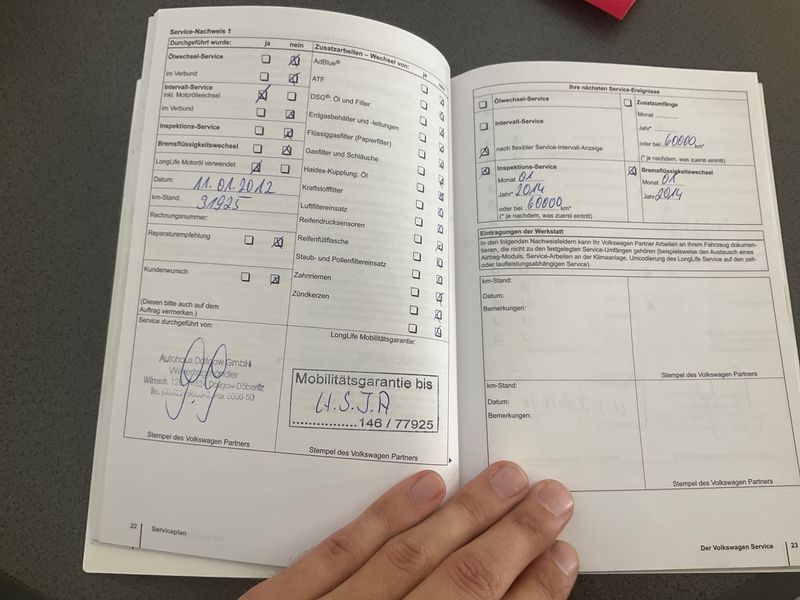 Service-Nachweis 1
Durchgeführt wurde: ja nein
Ölwechsel-Service
im Verbund
Intervall-Service
inkl. Motorölwechsel
im Verbund
Inspektions-Service
Bremsflüssigkeitswechsel
LongLife Motoröl verwendet
Datum: 11.01.2012
km-Stand: 31925
Rechnungsnummer:
Reparaturempfehlung
Kundenwunsch
(Diesen bitte auch auf dem
Auftrag vermerken.)
Service durchgeführt von:
Autohaus Dallgow GmbH
Dallgow-Döberitz
Stempel des Volkswagen Partners
Zusatzarbeiten – Wechsel von: ja
AdBlue®
ATF
DSG®: Öl und Filter
Erdgasbehälter und -leitungen
Flüssiggasfilter (Papierfilter)
Gasfilter und Schläuche
Haldex-Kupplung: Öl
Kraftstofffilter
Luftfiltereinsatz
Reifendrucksensoren
Reifenfüllflasche
Staub- und Pollenfiltereinsatz
Zahnriemen
Zündkerzen
LongLife Mobilitätsgarantie:
Mobilitätsgarantie bis
H.S.J.A
146 / 77925
Stempel des Volkswagen Partners
22 Serviceplan
Ihre nächsten Service-Ereignisse
Ölwechsel-Service
Intervall-Service
nach flexibler Service-Intervall-Anzeige
Zusatzumfänge
Monat
Jahr*
oder bei 60000 km*
(* je nachdem, was zuerst eintritt)
Inspektions-Service
Monat 01
Jahr* 2014
oder bei 60000 km*
(* je nachdem, was zuerst eintritt)
Bremsflüssigkeitswechsel
Monat 01
Jahr 2014
Eintragungen der Werkstatt
In den folgenden Nachweisfeldern kann Ihr Volkswagen Partner Arbeiten an Ihrem Fahrzeug dokumen-
tieren, die nicht zu den festgelegten Service-Umfängen gehören (beispielsweise den Austausch eines
Airbag-Moduls, Service-Arbeiten an der Klimaanlage, Umcodierung des LongLife Service auf den zeit-
oder laufleistungsabhängigen Service).
km-Stand:
Datum:
Bemerkungen:
Stempel des Volkswagen Partners
km-Stand:
Datum:
Bemerkungen:
Stempel des Volkswagen Partners
Der Volkswagen Service 23